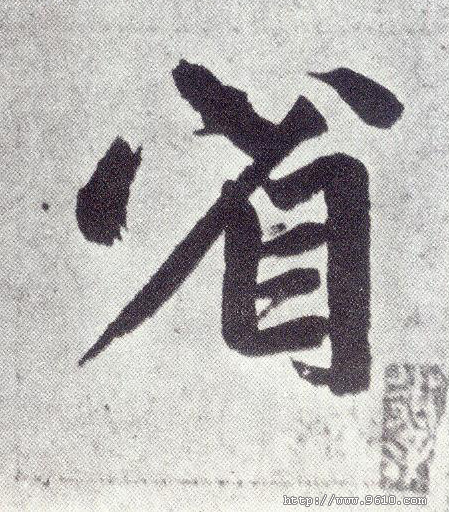 省
http://www.9610.com